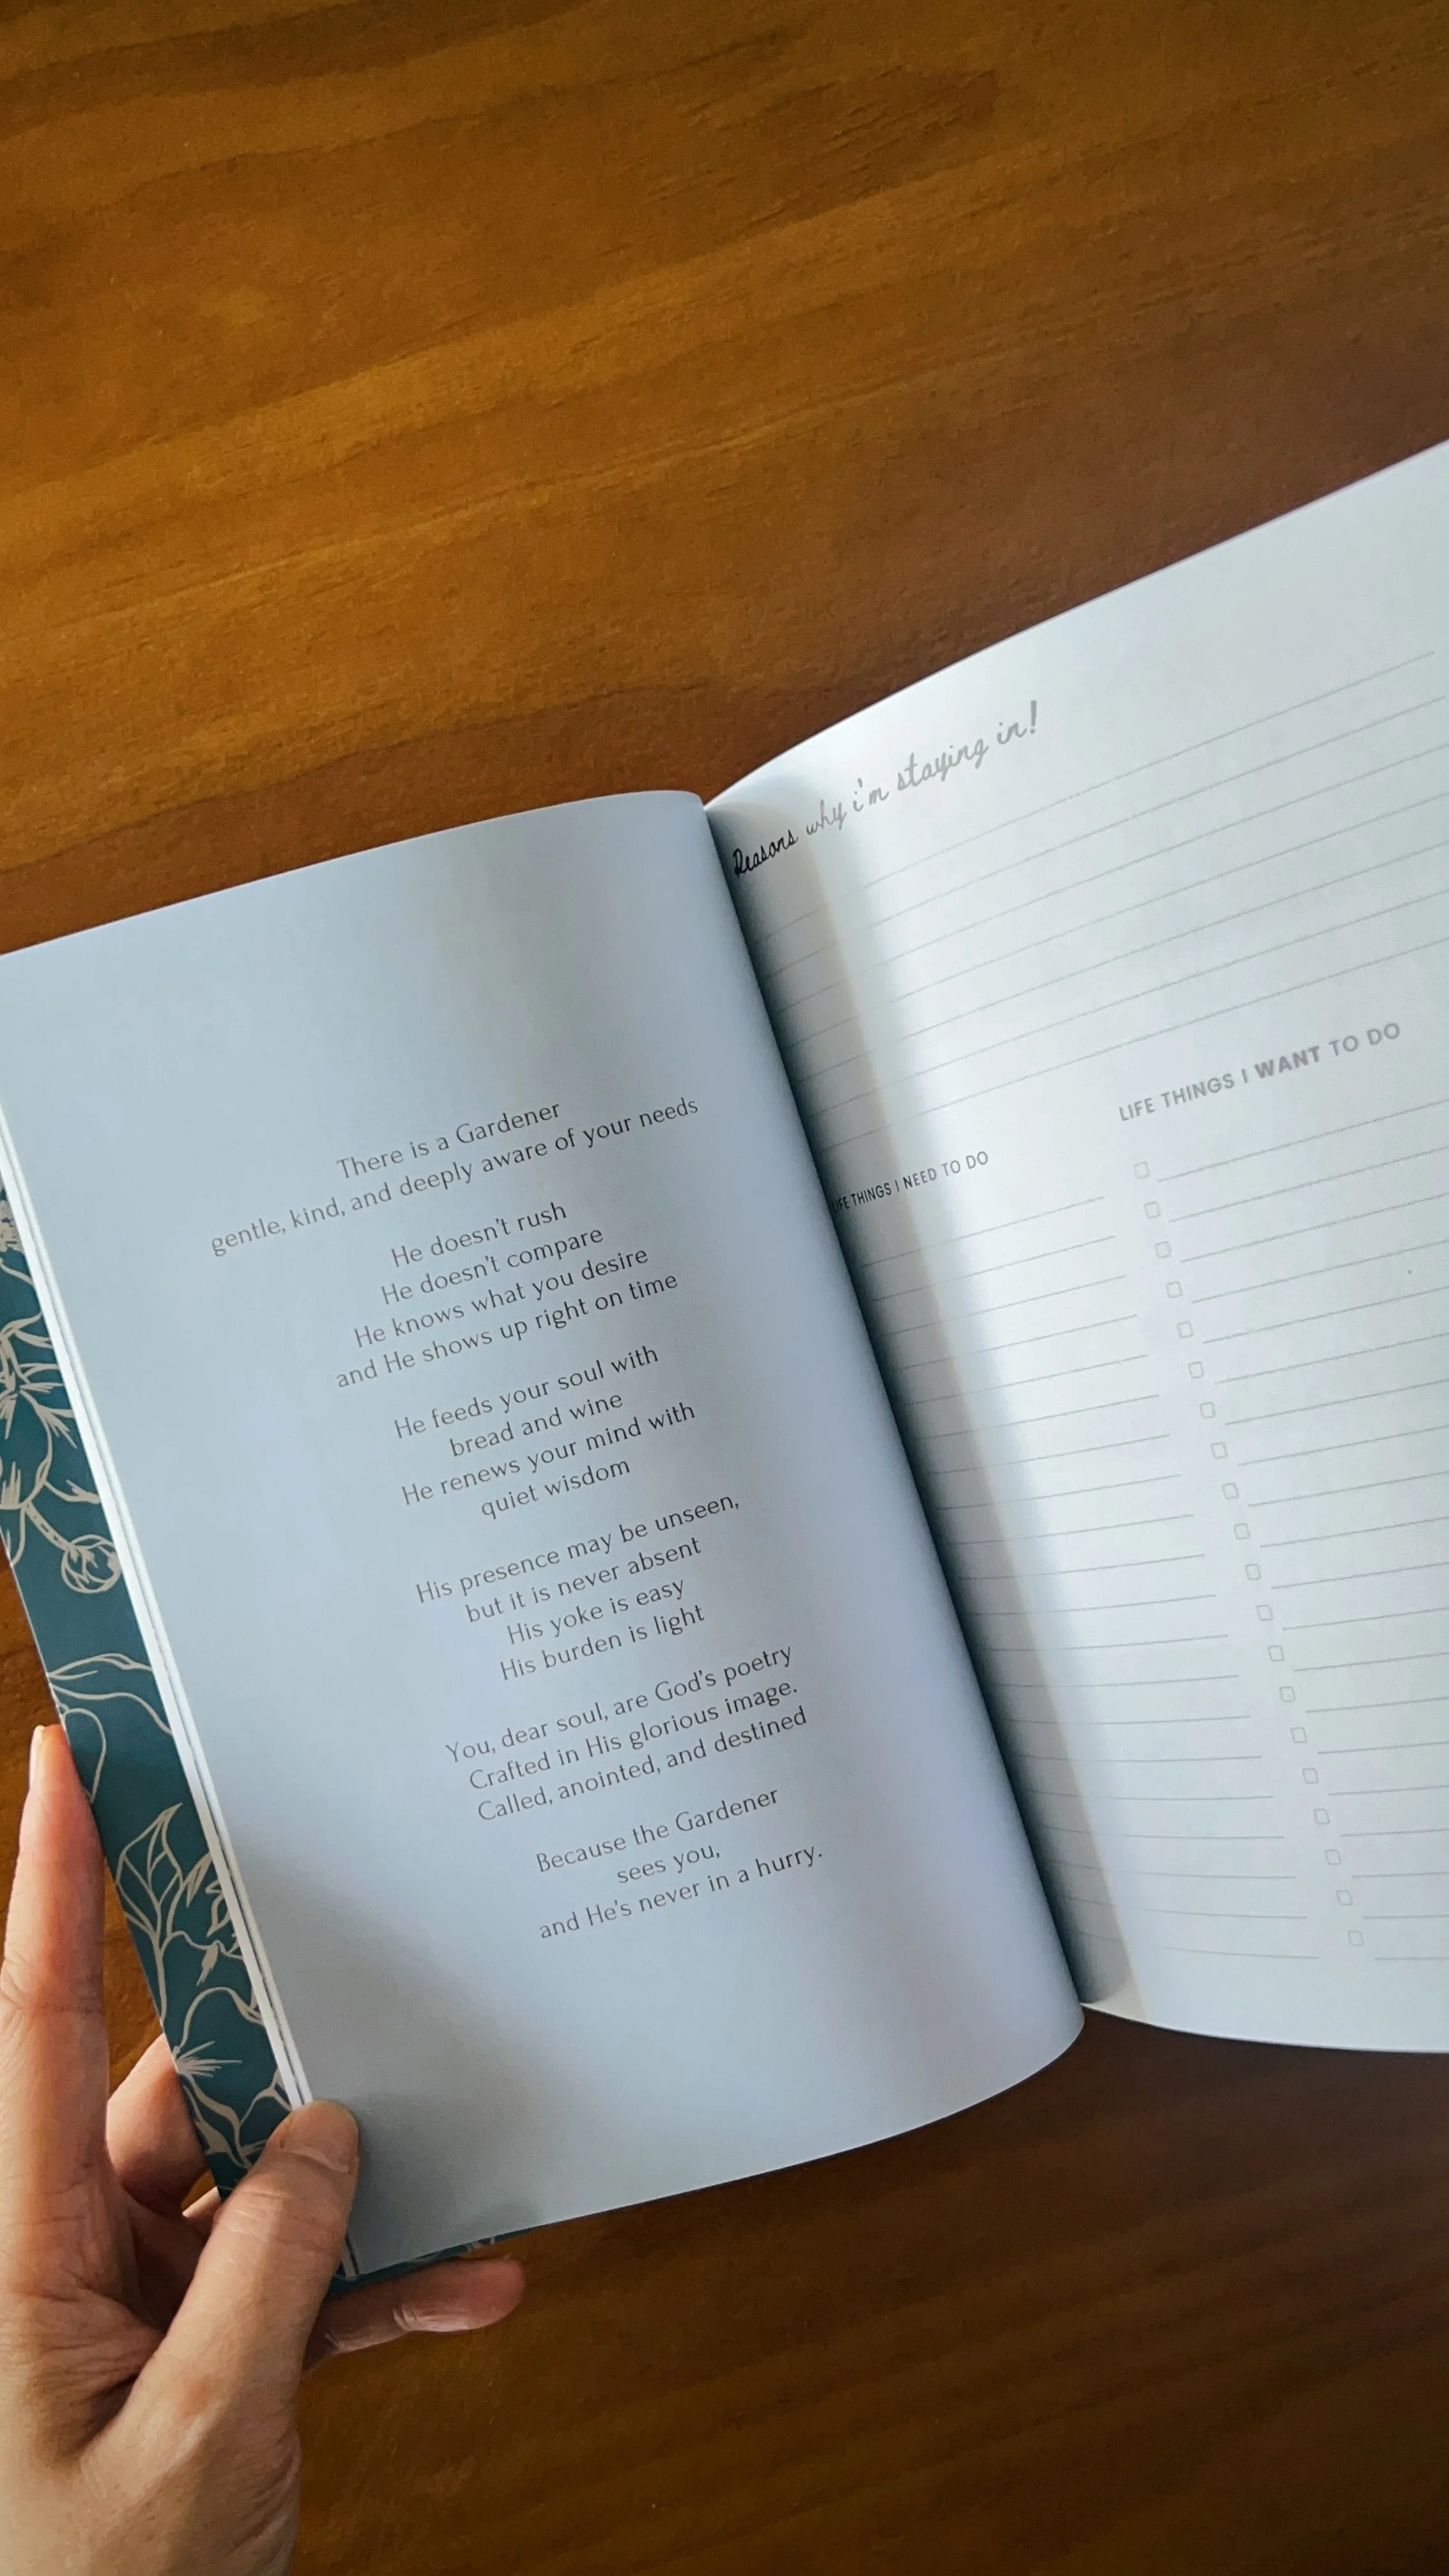 There is a Gardener
gentle, kind, and deeply aware of your needs
He doesn't rush
He doesn't compare
He knows what you desire
and He shows up right on time
He feeds your soul with
bread and wine
He renews your mind with
quiet wisdom
His presence may be unseen,
but it is never absent
His yoke is easy
His burden is light
You, dear soul, are God's poetry
Crafted in His glorious image.
Called, anointed, and destined
Because the Gardener
sees you,
and He's never in a hurry.
Reasons why i'm staying in!
LIFE THINGS I NEED TO DO
LIFE THINGS I WANT TO DO